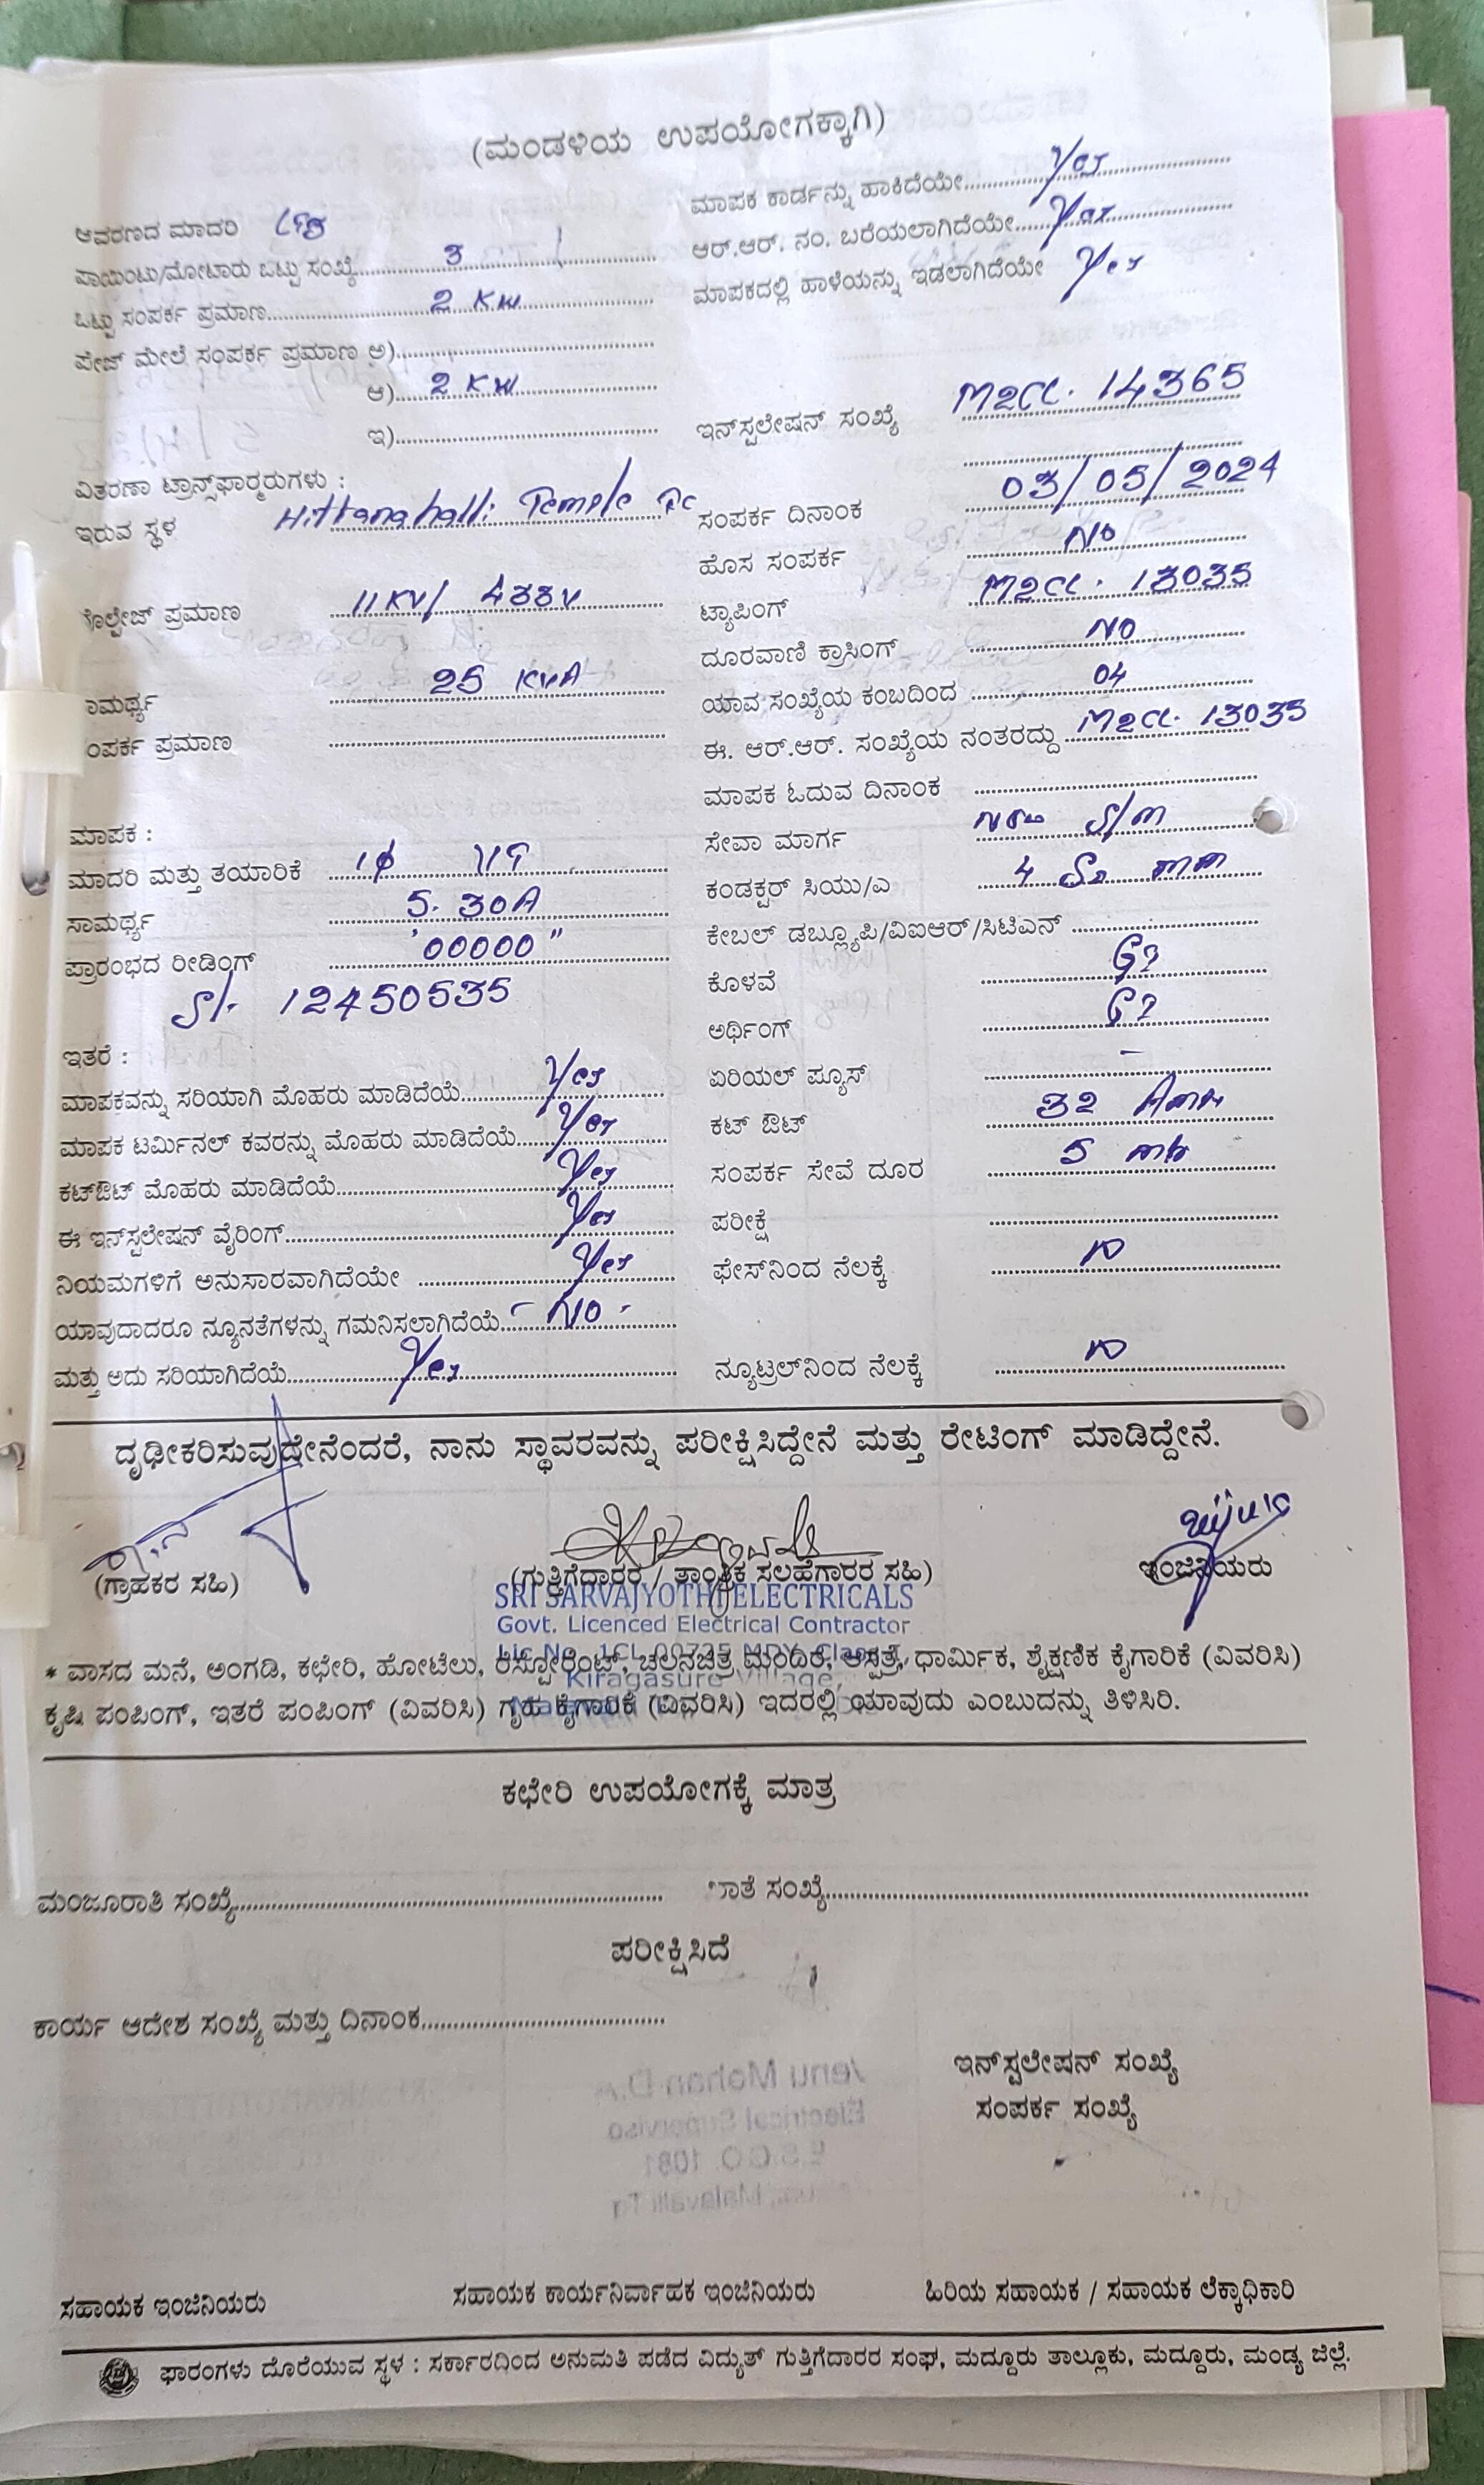 (ಮಂಡಳಿಯ ಉಪಯೋಗಕ್ಕಾಗಿ)
ಆವರಣದ ಮಾದರಿ
ಪಾಯಿಂಟು/ಮೋಟಾರು ಒಟ್ಟು ಸಂಖ್ಯೆ 3
ಒಟ್ಟು ಸಂಪರ್ಕ ಪ್ರಮಾಣ 2 KW
ಪೇಜ್ ಮೇಲೆ ಸಂಪರ್ಕ ಪ್ರಮಾಣ ಅ)
ಆ) 2 KW
ಇ)
ವಿತರಣಾ ಟ್ರಾನ್ಸ್‌ಫಾರ್ಮರುಗಳು :
ಇರುವ ಸ್ಥಳ Hittanahalli Temple
ಪ್ರಮಾಣ 11KV/ 433V
25 KVA
ಪ್ರಮಾಣ
ಮಾಪಕ :
ಮಾದರಿ ಮತ್ತು ತಯಾರಿಕೆ 1ϕ
ಸಾಮರ್ಥ್ಯ 5-30A
ಪ್ರಾರಂಭದ ರೀಡಿಂಗ್ "00000"
Sl. 12450535
ಇತರೆ :
ಮಾಪಕವನ್ನು ಸರಿಯಾಗಿ ಮೊಹರು ಮಾಡಿದೆಯೆ Yes
ಮಾಪಕ ಟರ್ಮಿನಲ್ ಕವರನ್ನು ಮೊಹರು ಮಾಡಿದೆಯೆ Yes
ಕಟ್‌ಔಟ್ ಮೊಹರು ಮಾಡಿದೆಯೆ Yes
ಈ ಇನ್‌ಸ್ಟಲೇಷನ್ ವೈರಿಂಗ್ Yes
ನಿಯಮಗಳಿಗೆ ಅನುಸಾರವಾಗಿದೆಯೇ Yes
ಯಾವುದಾದರೂ ನ್ಯೂನತೆಗಳನ್ನು ಗಮನಿಸಲಾಗಿದೆಯೆ - NO -
ಮತ್ತು ಅದು ಸರಿಯಾಗಿದೆಯೆ Yes
ಮಾಪಕ ಕಾರ್ಡನ್ನು ಹಾಕಿದೆಯೇ Yes
ಆರ್.ಆರ್. ನಂ. ಬರೆಯಲಾಗಿದೆಯೇ Yes
ಮಾಪಕದಲ್ಲಿ ಹಾಳೆಯನ್ನು ಇಡಲಾಗಿದೆಯೇ Yes
ಇನ್‌ಸ್ಟಲೇಷನ್ ಸಂಖ್ಯೆ M2CL. 14365
ಸಂಪರ್ಕ ದಿನಾಂಕ 03/05/2024
ಹೊಸ ಸಂಪರ್ಕ NO
ಟ್ಯಾಪಿಂಗ್ M2CL. 13035
ದೂರವಾಣಿ ಕ್ರಾಸಿಂಗ್ NO
ಯಾವ ಸಂಖ್ಯೆಯ ಕಂಬದಿಂದ 04
ಈ. ಆರ್.ಆರ್. ಸಂಖ್ಯೆಯ ನಂತರದ್ದು M2CL. 13035
ಮಾಪಕ ಓದುವ ದಿನಾಂಕ
ಸೇವಾ ಮಾರ್ಗ S/m
ಕಂಡಕ್ಟರ್ ಸಿಯು/ಎ 4 Sq mm
ಕೇಬಲ್ ಡಬ್ಲ್ಯೂಪಿ/ವಿಐಆರ್/ಸಿಟಿಎಸ್
ಕೊಳವೆ GI
ಅರ್ಥಿಂಗ್ GI
ಏರಿಯಲ್ ಪ್ಯೂಸ್ -
ಕಟ್ ಔಟ್ 32 Amps
ಸಂಪರ್ಕ ಸೇವೆ ದೂರ 5 mtr
ಪರೀಕ್ಷೆ
ಫೇಸ್‌ನಿಂದ ನೆಲಕ್ಕೆ
ನ್ಯೂಟ್ರಲ್‌ನಿಂದ ನೆಲಕ್ಕೆ
ದೃಢೀಕರಿಸುವುದೇನೆಂದರೆ, ನಾನು ಸ್ಥಾವರವನ್ನು ಪರೀಕ್ಷಿಸಿದ್ದೇನೆ ಮತ್ತು ರೇಟಿಂಗ್ ಮಾಡಿದ್ದೇನೆ.
(ಗ್ರಾಹಕರ ಸಹಿ) (ಗುತ್ತಿಗೆದಾರರ / ತಾಂತ್ರಿಕ ಸಲಹೆಗಾರರ ಸಹಿ) ಇಂಜಿನಿಯರು
SRI SARVAJYOTHI ELECTRICALS
Govt. Licenced Electrical Contractor
Kiragasure Village,
* ವಾಸದ ಮನೆ, ಅಂಗಡಿ, ಕಛೇರಿ, ಹೋಟೆಲು, ರೆಸ್ಟೋರೆಂಟ್, ಚಲನಚಿತ್ರ ಮಂದಿರ, ಆಸ್ಪತ್ರೆ, ಧಾರ್ಮಿಕ, ಶೈಕ್ಷಣಿಕ ಕೈಗಾರಿಕೆ (ವಿವರಿಸಿ)
ಕೃಷಿ ಪಂಪಿಂಗ್, ಇತರೆ ಪಂಪಿಂಗ್ (ವಿವರಿಸಿ) ಗೃಹ ಕೈಗಾರಿಕೆ (ವಿವರಿಸಿ) ಇದರಲ್ಲಿ ಯಾವುದು ಎಂಬುದನ್ನು ತಿಳಿಸಿರಿ.
ಕಛೇರಿ ಉಪಯೋಗಕ್ಕೆ ಮಾತ್ರ
ಮಂಜೂರಾತಿ ಸಂಖ್ಯೆ ಸಂಖ್ಯೆ
ಪರೀಕ್ಷಿಸಿದೆ
ಕಾರ್ಯ ಆದೇಶ ಸಂಖ್ಯೆ ಮತ್ತು ದಿನಾಂಕ
ಇನ್‌ಸ್ಟಲೇಷನ್ ಸಂಖ್ಯೆ
ಸಂಪರ್ಕ ಸಂಖ್ಯೆ
ಸಹಾಯಕ ಇಂಜಿನಿಯರು ಸಹಾಯಕ ಕಾರ್ಯನಿರ್ವಾಹಕ ಇಂಜಿನಿಯರು ಹಿರಿಯ ಸಹಾಯಕ / ಸಹಾಯಕ ಲೆಕ್ಕಾಧಿಕಾರಿ
ಫಾರಂಗಳು ದೊರೆಯುವ ಸ್ಥಳ : ಸರ್ಕಾರದಿಂದ ಅನುಮತಿ ಪಡೆದ ವಿದ್ಯುತ್ ಗುತ್ತಿಗೆದಾರರ ಸಂಘ, ಮದ್ದೂರು ತಾಲ್ಲೂಕು, ಮದ್ದೂರು, ಮಂಡ್ಯ ಜಿಲ್ಲೆ.